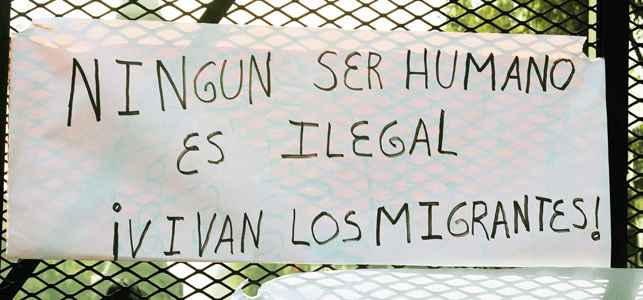 NINGUN SER HUMANO
ES ILEGAL
¡VIVAN LOS MIGRANTES!